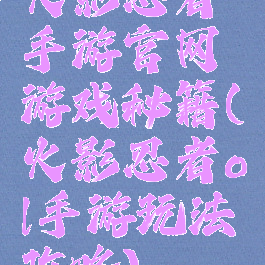 火影忍者
手游官网
游戏秘籍(
火影忍者。
|手游玩法
攻略)